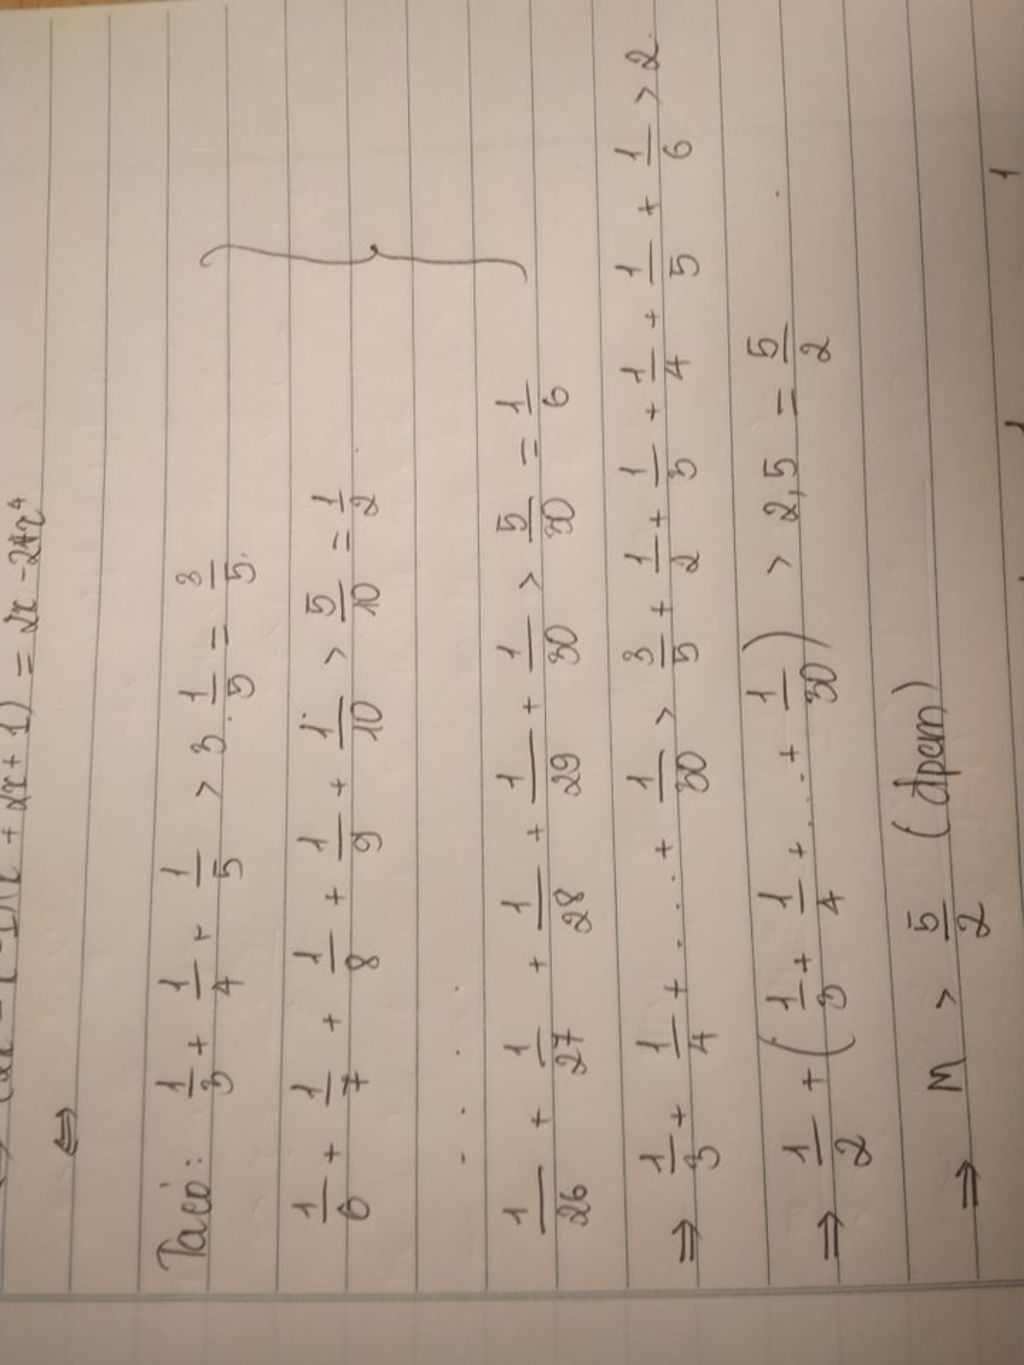 + 2x + 1) = 2x - 24x⁴
⇔
Ta có: 1/3 + 1/4 + 1/5 > 3. 1/5 = 3/5.
1/6 + 1/7 + 1/8 + 1/9 + 1/10 > 5/10 = 1/2
. . . .
1/26 + 1/27 + 1/28 + 1/29 + 1/30 > 5/30 = 1/6
⇒ 1/3 + 1/4 + .... + 1/30 > 3/5 + 1/2 + 1/3 + 1/4 + 1/5 + 1/6 > 2.
⇒ 1/2 + (1/3 + 1/4 + .... + 1/30) > 2,5 = 5/2
⇒ M > 5/2 (đpcm)